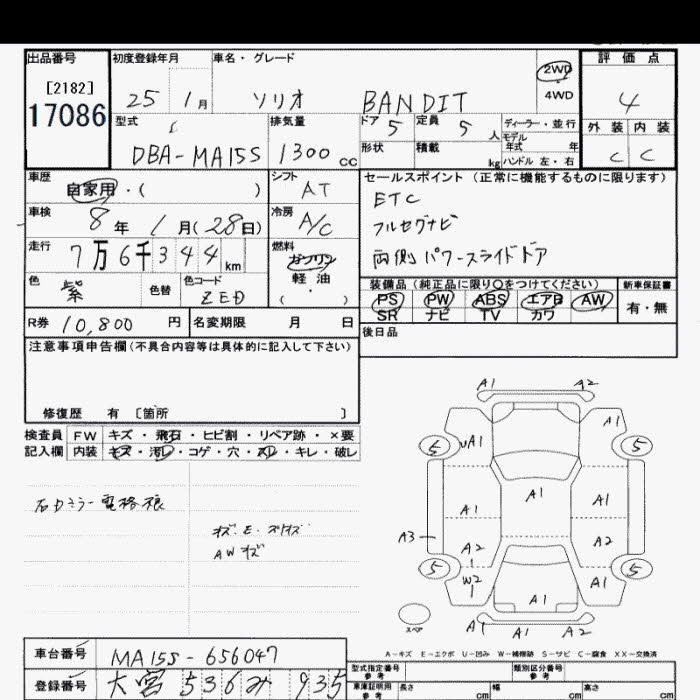 出品番号 初度登録年月 車名・グレード 2WD 評価点
[2182] 25 1月 ソリオ BANDIT 4WD 4
17086 型式 排気量 ドア 5 定員 5 人 ディーラー・並行 外装 内装
DBA-MA15S 1300 cc 形状 積載 kg モデル年式 年 C C
ハンドル 左・右
車歴 自家用・( ) シフト AT セールスポイント (正常に機能するものに限ります)
車検 8年 1月(28日) 冷房 A/C ETC
フルセグナビ
走行 7万6千344km 燃料 ガソリン 両側パワースライドドア
軽油
・
( )
色 紫 色替 色コード ZED 装備品 (純正品に限り○をつけてください) 新車保証書
PS PW ABS エアB AW 有・無
R券 10,800 円 名変期限 月 日 SR ナビ TV カワ
注意事項申告欄(不具合内容等は具体的に記入して下さい) 後日品
修復歴 有 [箇所 ]
検査員 FW キズ・飛石・ヒビ割・リペア跡・×要
記入欄 内装 キズ・汚レ・コゲ・穴・スレ・キレ・破レ
キズ・E・スリキズ
AWキズ
A1 A2
A1
5 uA1 5
A1
A1 A1
A3 A2 A2
5 W2 A1 5
A1
スペア A1 A1 A2
A-キズ E-エクボ U-凹み W-補修跡 S-サビ C-腐食 XX-交換済
車台番号 MA15S-656047 型式指定番号 参考 類別区分番号 参考
登録番号 大宮 536 み 935 車庫証明用 参考 長さ cm 幅 cm 高さ cm